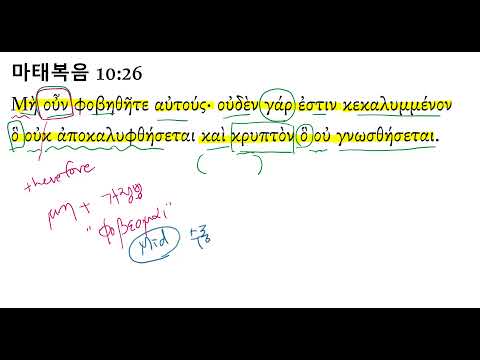 마태복음 10:26
Μὴ οὖν φοβηθῆτε αὐτούς· οὐδὲν γάρ ἐστιν κεκαλυμμένον
ὃ οὐκ ἀποκαλυφθήσεται καὶ κρυπτὸν ὃ οὐ γνωσθήσεται.
( )
therefore
μη + 가정법
"φοβεομαι"
Mid